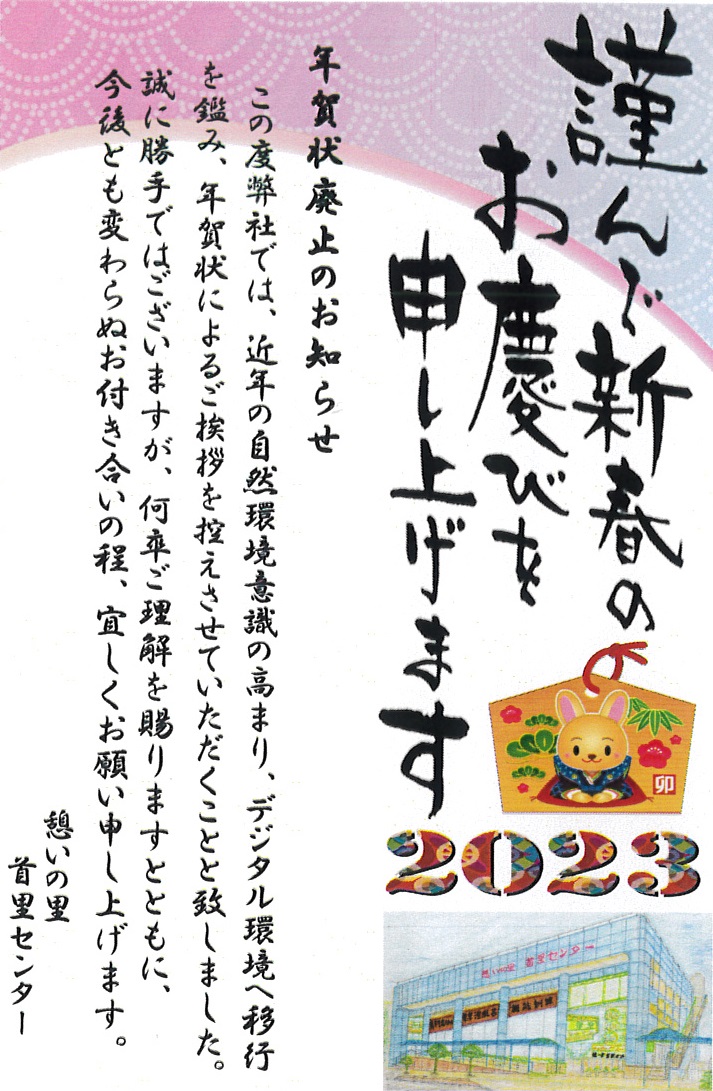 謹んで新春の
お慶びを
申し上げます
卯
2023
憩いの里 首里センター
年賀状廃止のお知らせ
この度弊社では、近年の自然環境意識の高まり、デジタル環境へ移行
を鑑み、年賀状によるご挨拶を控えさせていただくことと致しました。
誠に勝手ではございますが、何卒ご理解を賜りますとともに、
今後とも変わらぬお付き合いの程、宜しくお願い申し上げます。
憩いの里
首里センター